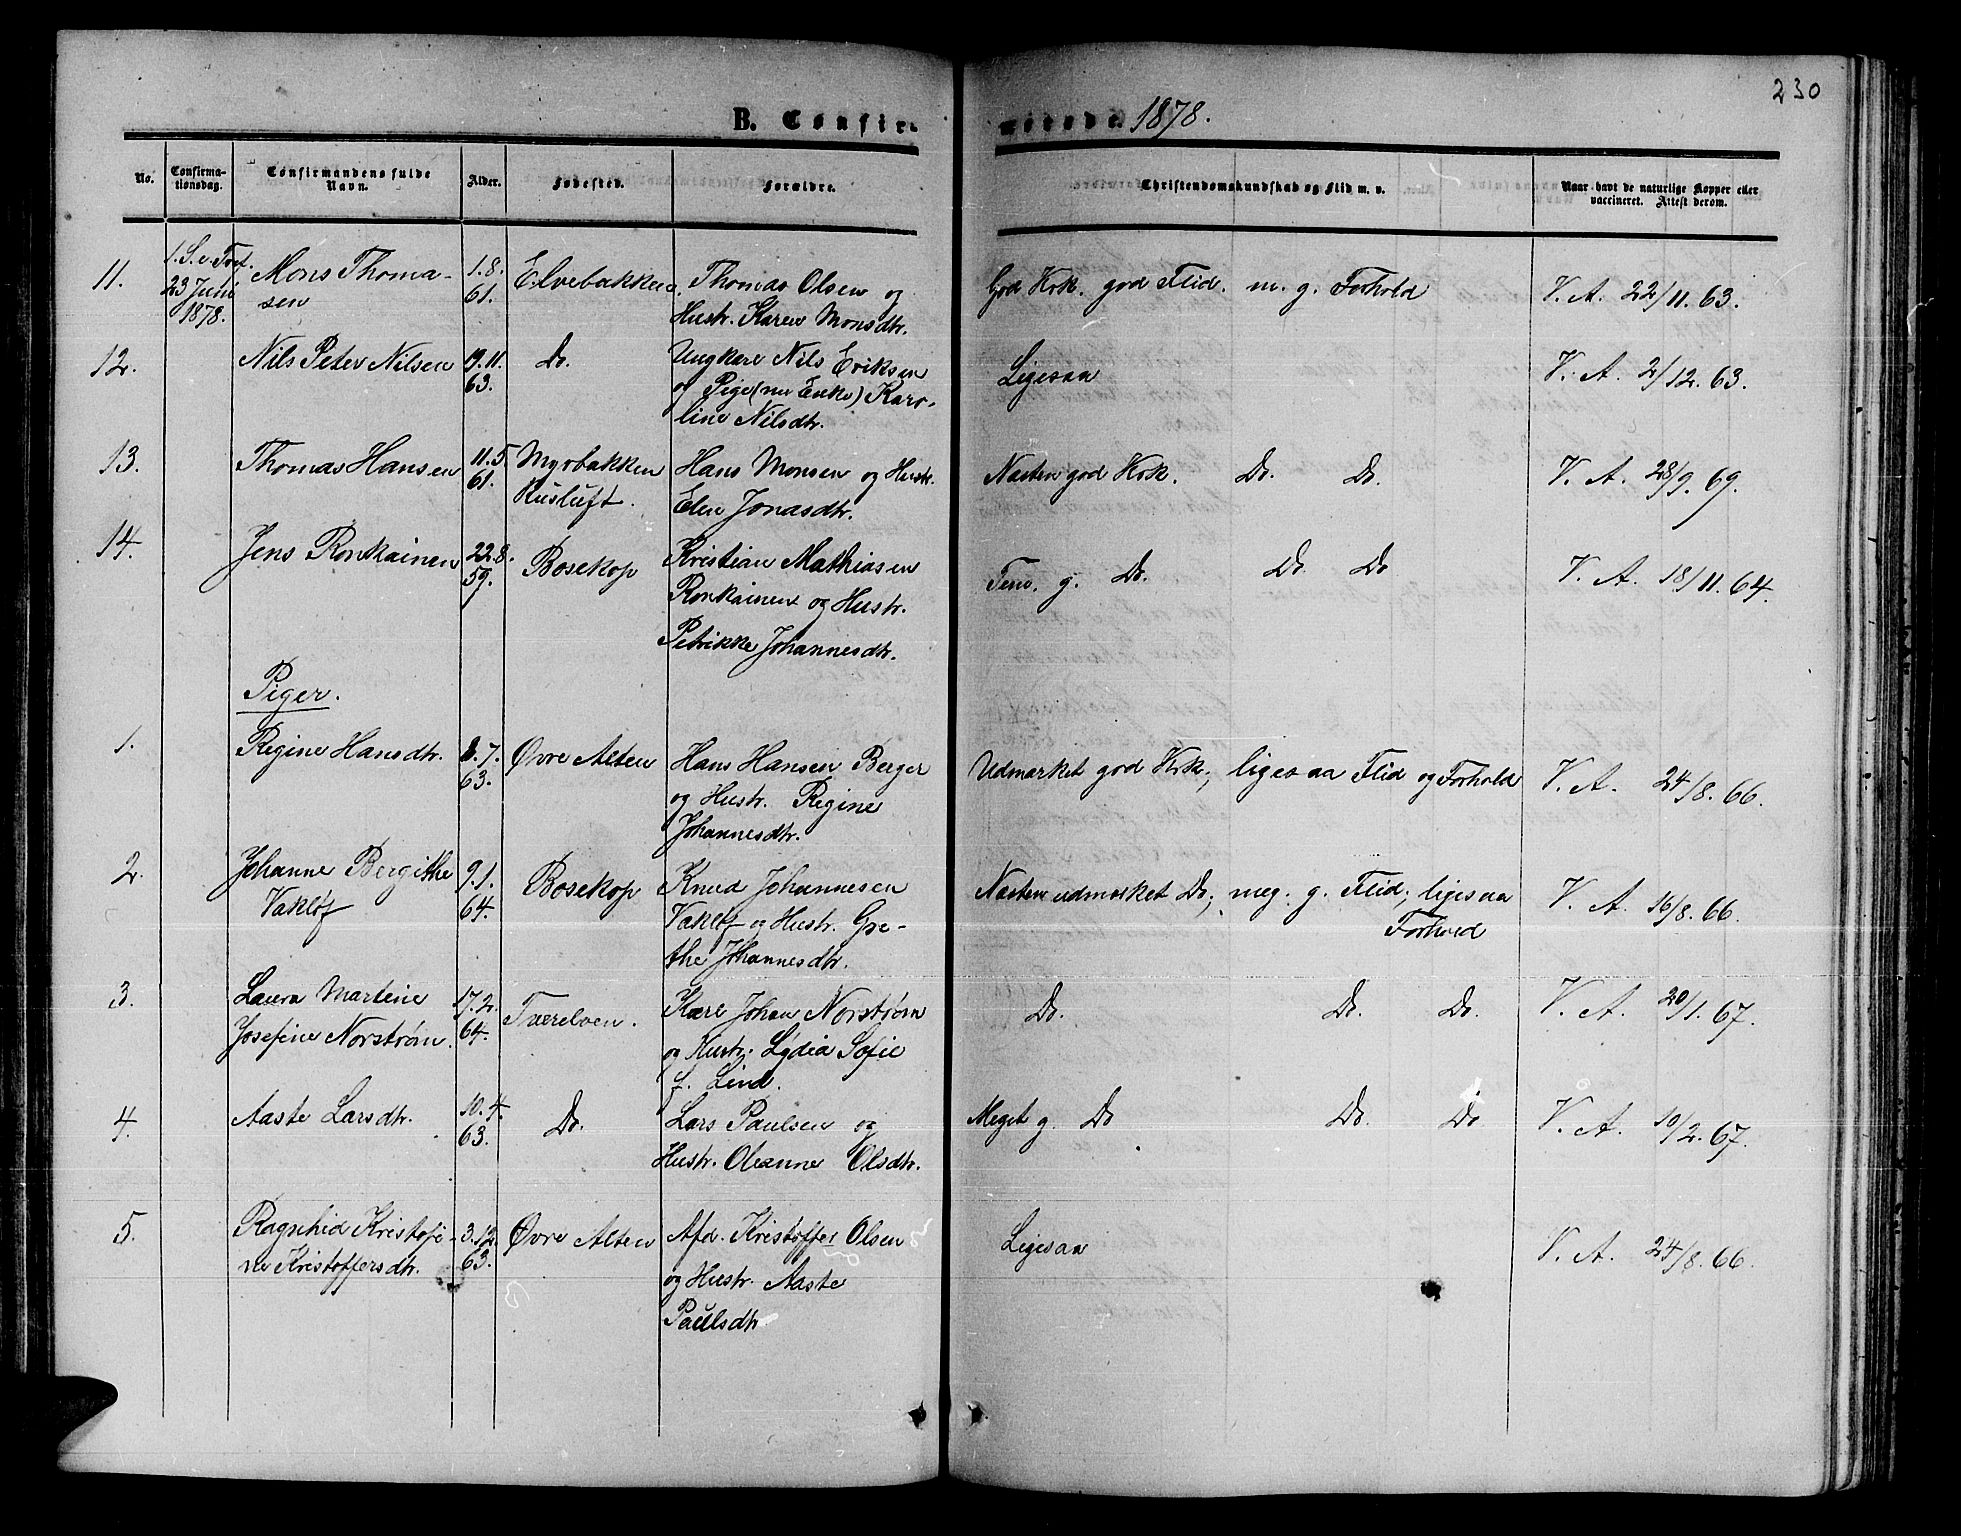 230
B. Confirmerede 1878.
No.
Confirmationsdag.
Confirmandens fulde Navn.
Alder.
Fødested.
Forældre.
Christendomskundskab og Flid m. v.
Naar havt de naturlige Kopper eller vaccineret. Attest derom.
11. 1. S. e. Tref. Mons Thoma- 1.8. Elvebakken. Thomas Olsen og God Krk. god Flid. m. g. Forhold V. A. 22/11. 63.
23 Juni sen 61. Hustr. Karen Monsdtr.
1878.
12. Nils Peter Nilsen 19.11. Do. Ungkarl Nils Eriksen Ligesaa V. A. 2/12. 63.
63. og Pige (nu Enke) Karo-
line Nilsdtr.
13. Thomas Hansen 11.5. Myrbakken Hans Monsen og Hustr. Næsten god Krk. Do. Do. V. A. 28/9. 69.
61. Rusluft. Elen Jonasdtr.
14. Jens Ronkainen 22.8. Bosekop Kristian Mathiasen Tem. g. Do. Do. Do V. A. 18/11. 64.
59. Ronkainen og Hustr.
Petrikke Johannesdtr.
Piger.
1. Regine Hansdtr. 8.7. Øvre Alten Hans Hansen Berger Udmærket god Krk.; ligesaa Flid og Forhold V. A. 24/8. 66.
63. og Hustr. Regine
Johannesdtr.
2. Johanne Bergithe 9.1. Bosekop Knud Johannesen Næsten udmærket Do.; meg. g. Flid; ligesaa V. A. 16/8. 66.
Vakløf 64. Vakløf og Hustr. Gre- Forhold
the Johannesdtr.
3. Laura Martine 17.2. Tverelven. Karl Johan Norstrøm Do. Do. Do. V. A. 20/1. 67.
Josefine Norstrøm. 64. og Hustr. Lydia Sofie
f. Lind.
4. Aaste Larsdtr. 10.4. Do. Lars Paulsen og Meget g. Do Do. Do V. A. 10/2. 67.
63. Hustr. Oleanne Olsdtr.
5. Ragnhild Kristofi- 3.12. Øvre Alten Afd. Kristoffer Olsen Ligesaa V. A. 24/8. 66.
ne Kristoffersdtr. 63. og Hustr. Aaste
Paulsdtr